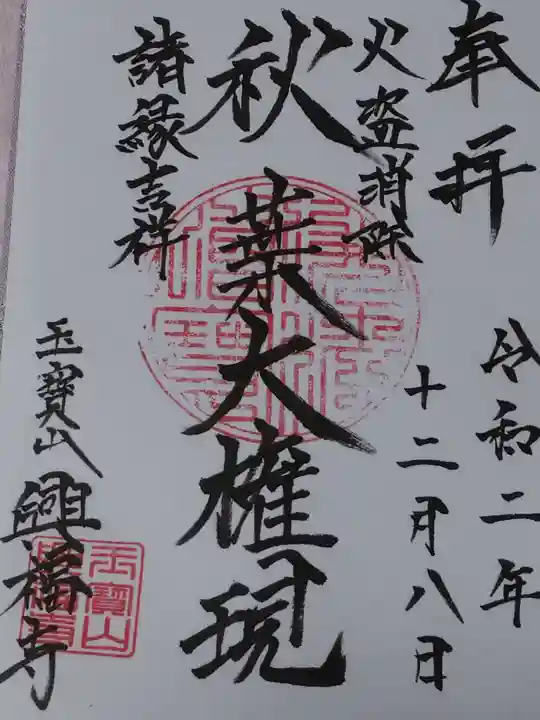 奉拝
令和二年
十二月八日
火盗消除
秋葉大権現
諸縁吉祥
玉寶山
興福寺
玉寶山
興福寺